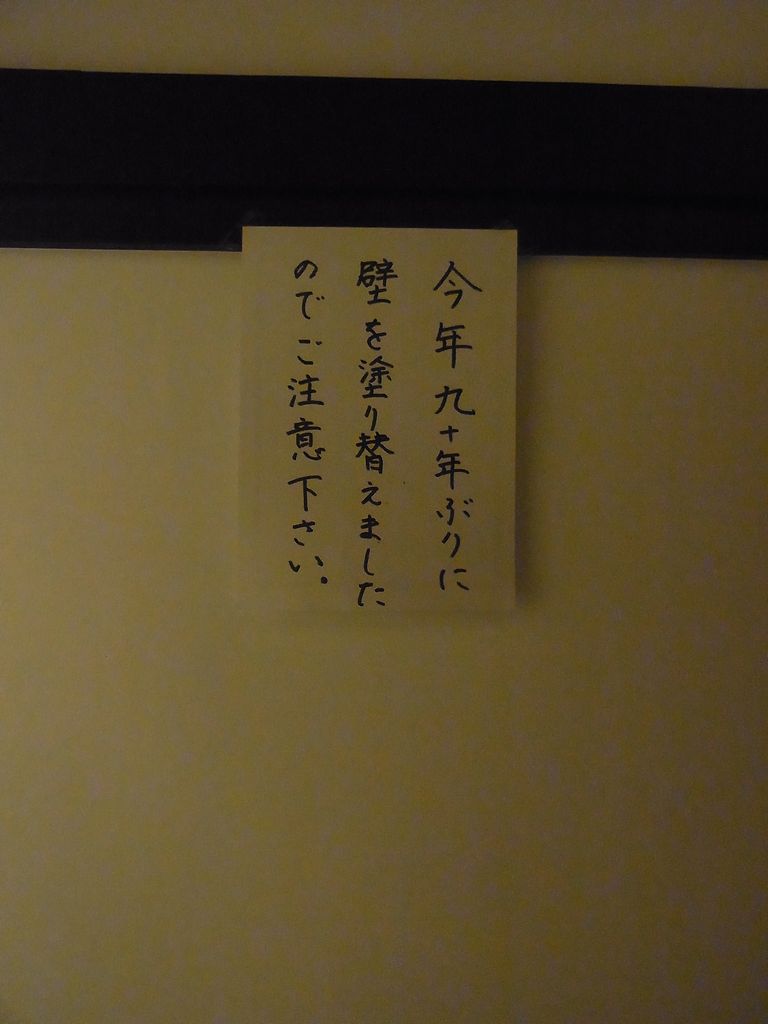 今年九十年ぶりに
壁を塗り替えました
のでご注意下さい。